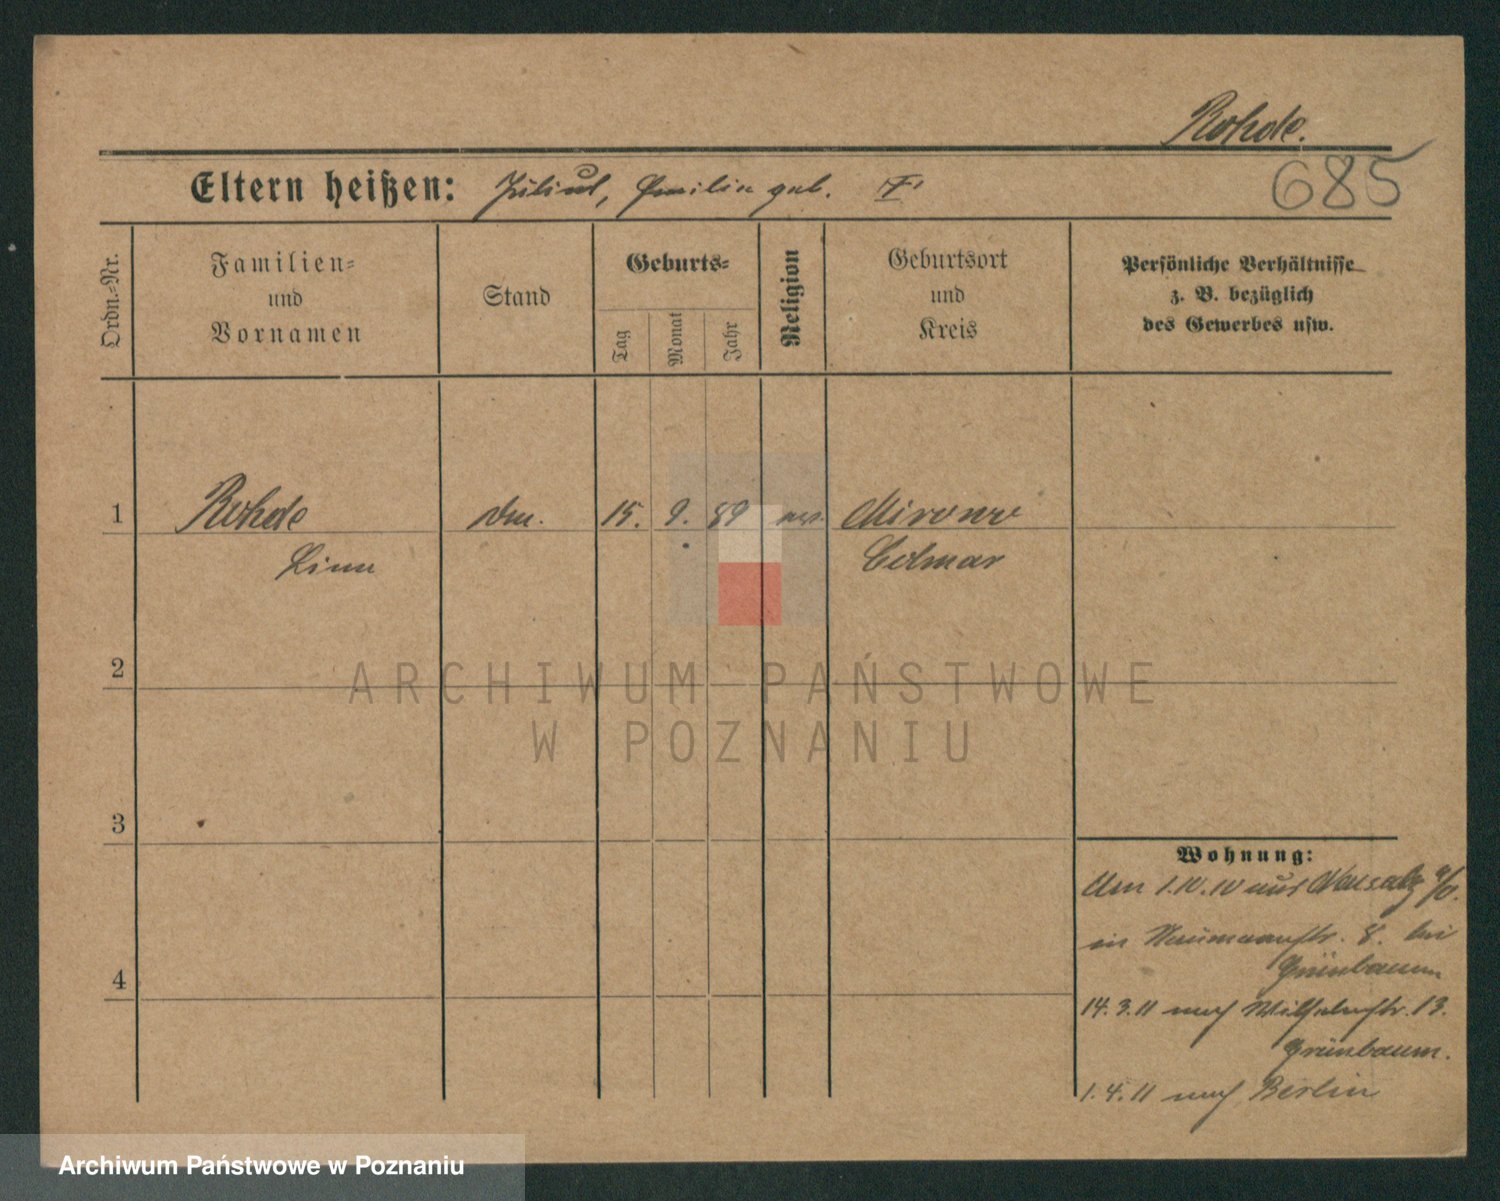 Rohde.
Eltern heißen: Julius, Emilie geb. F
685
Ordn.-Nr.
Familien-
und
Vornamen
Stand
Geburts-
Tag
Monat
Jahr
Religion
Geburtsort
und
Kreis
Persönliche Verhältnisse
z. B. bezüglich
des Gewerbes usw.
1
Rohde
15. 9. 89
Mirowo
Colmar
2
3
4
Wohnung:
Am 1.10.10 aus Neusalz a/O.
in Naumannstr. 8. bei
Grünbaum
14.3.11 nach Wilhelmstr. 13.
Grünbaum.
1.4.11 nach Berlin
ARCHIWUM PAŃSTWOWE
W POZNANIU
Archiwum Państwowe w Poznaniu